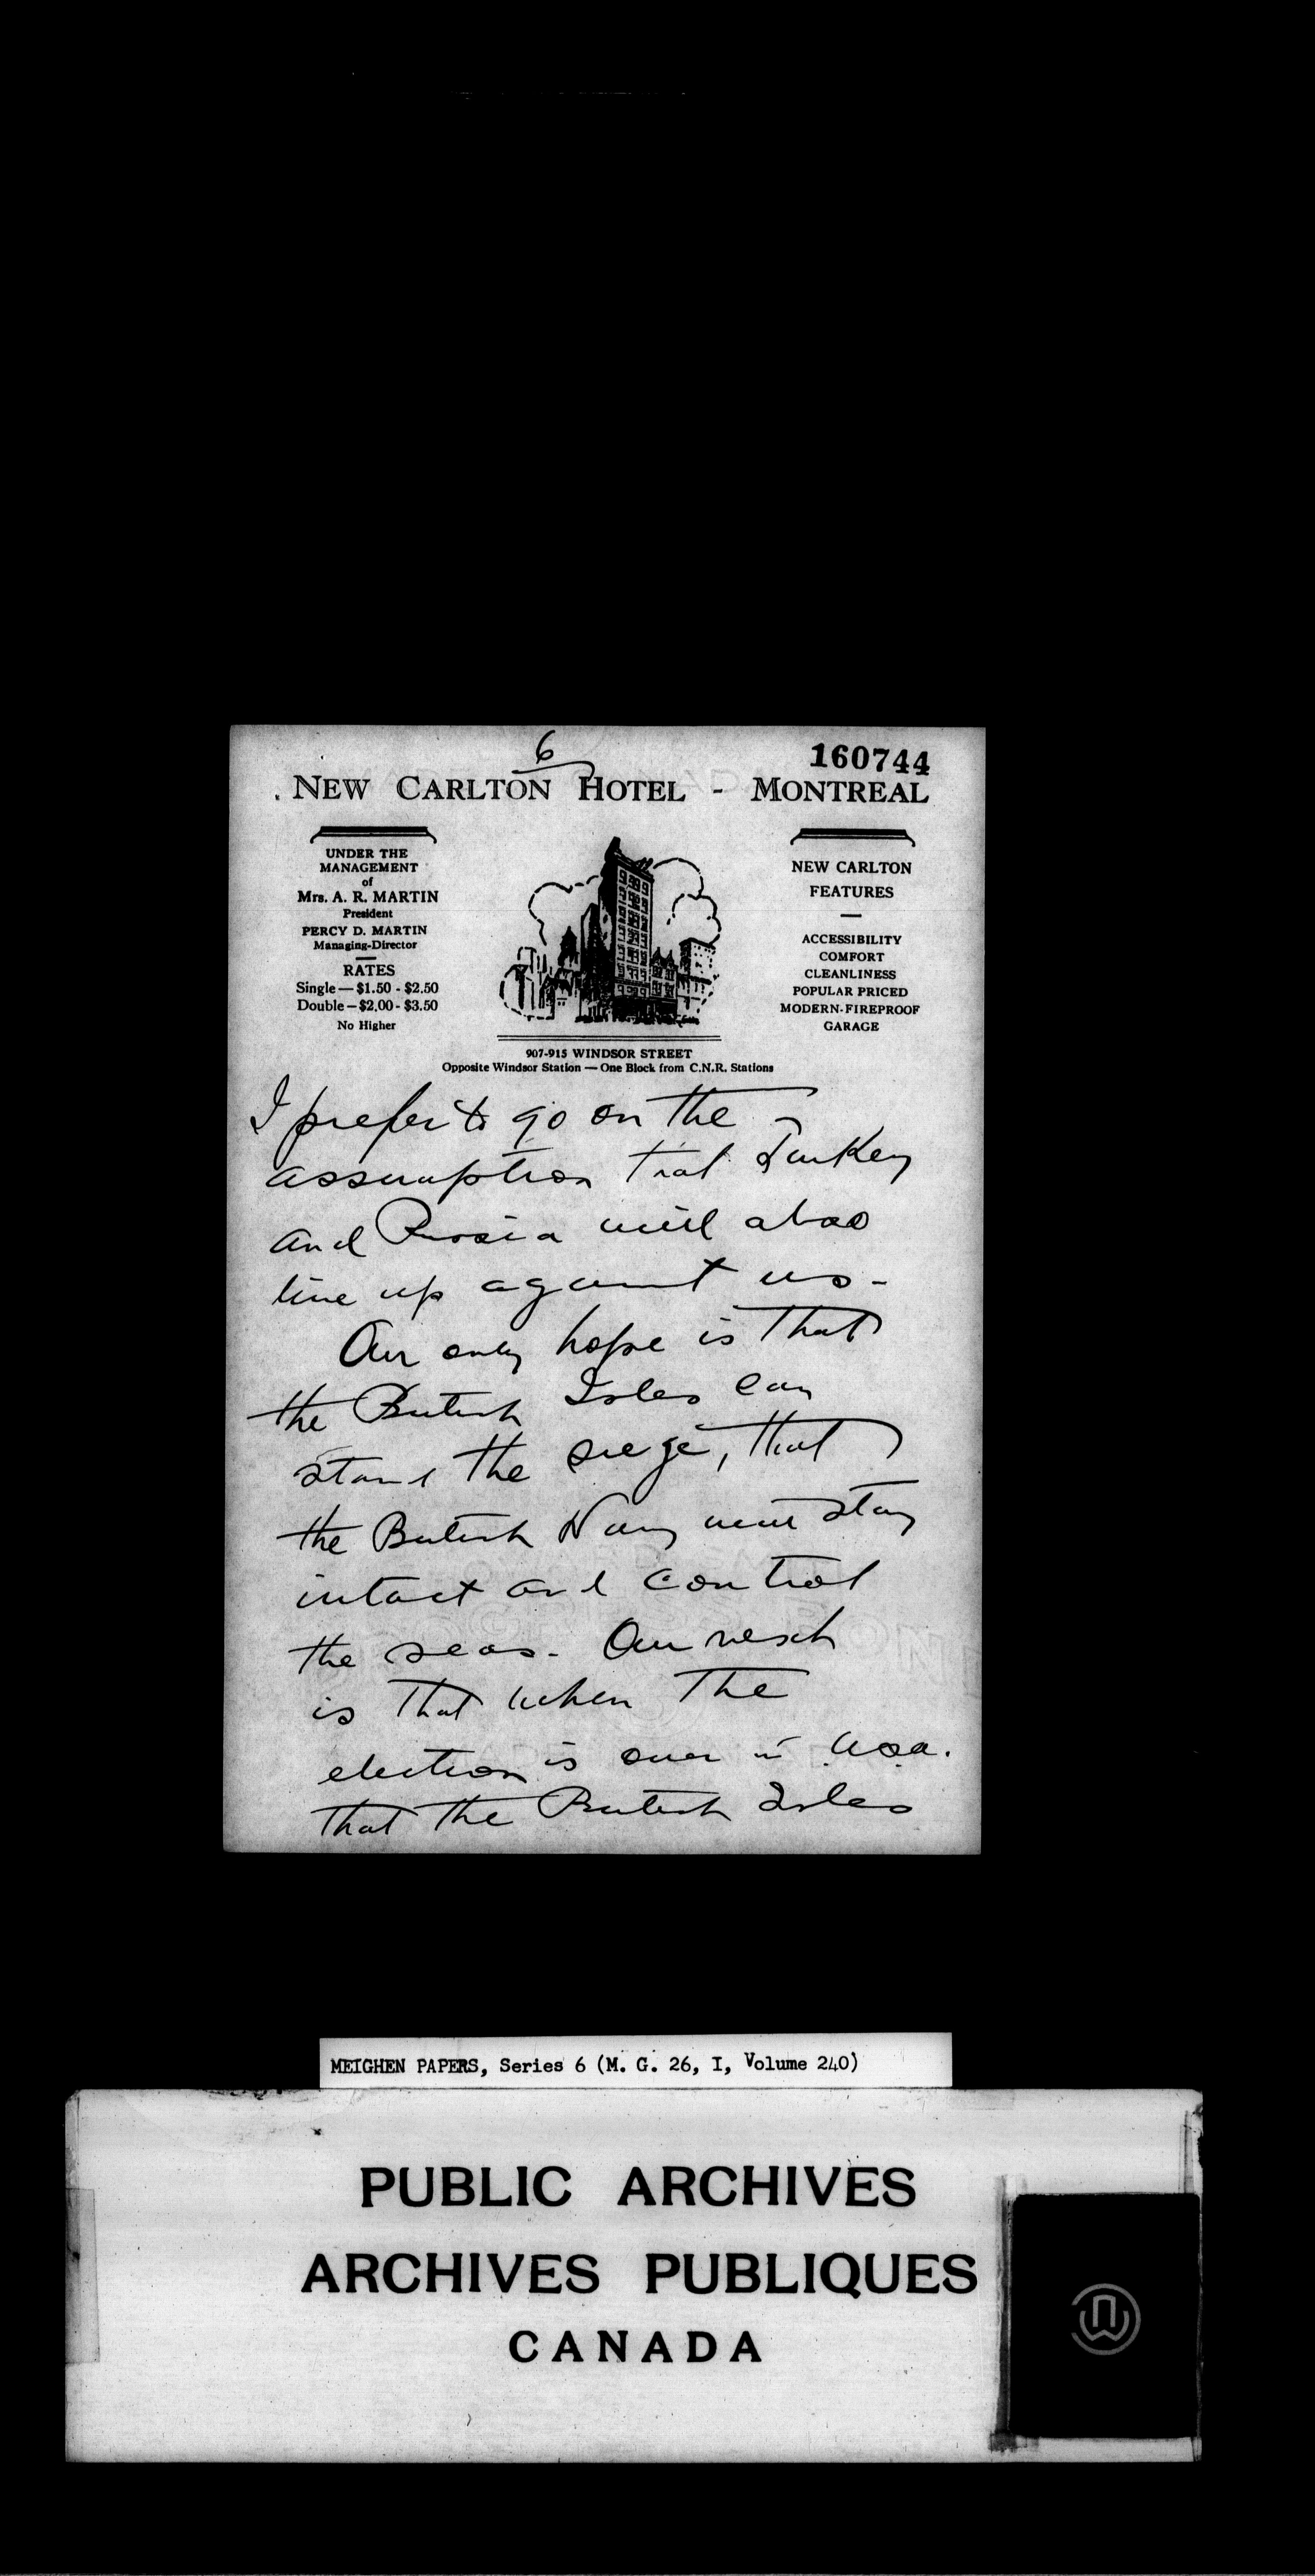 6
160744
NEW CARLTON HOTEL - MONTREAL
UNDER THE
MANAGEMENT
of
Mrs. A. R. MARTIN
President
PERCY D. MARTIN
Managing-Director
RATES
Single — $1.50 - $2.50
Double — $2.00 - $3.50
No Higher
NEW CARLTON
FEATURES
ACCESSIBILITY
COMFORT
CLEANLINESS
POPULAR PRICED
MODERN-FIREPROOF
GARAGE
907-915 WINDSOR STREET
Opposite Windsor Station — One Block from C.N.R. Stations
I prefer to go on the
assumption that Turkey
and Russia will also
line up against us -
Our only hope is that
the British Isles can
stand the siege, that
the British Navy will stay
intact and control
the seas - Our
is that when the
election is over in U.S.A.
that the British Isles
MEIGHEN PAPERS, Series 6 (M. G. 26, I, Volume 240)
PUBLIC ARCHIVES
ARCHIVES PUBLIQUES
CANADA